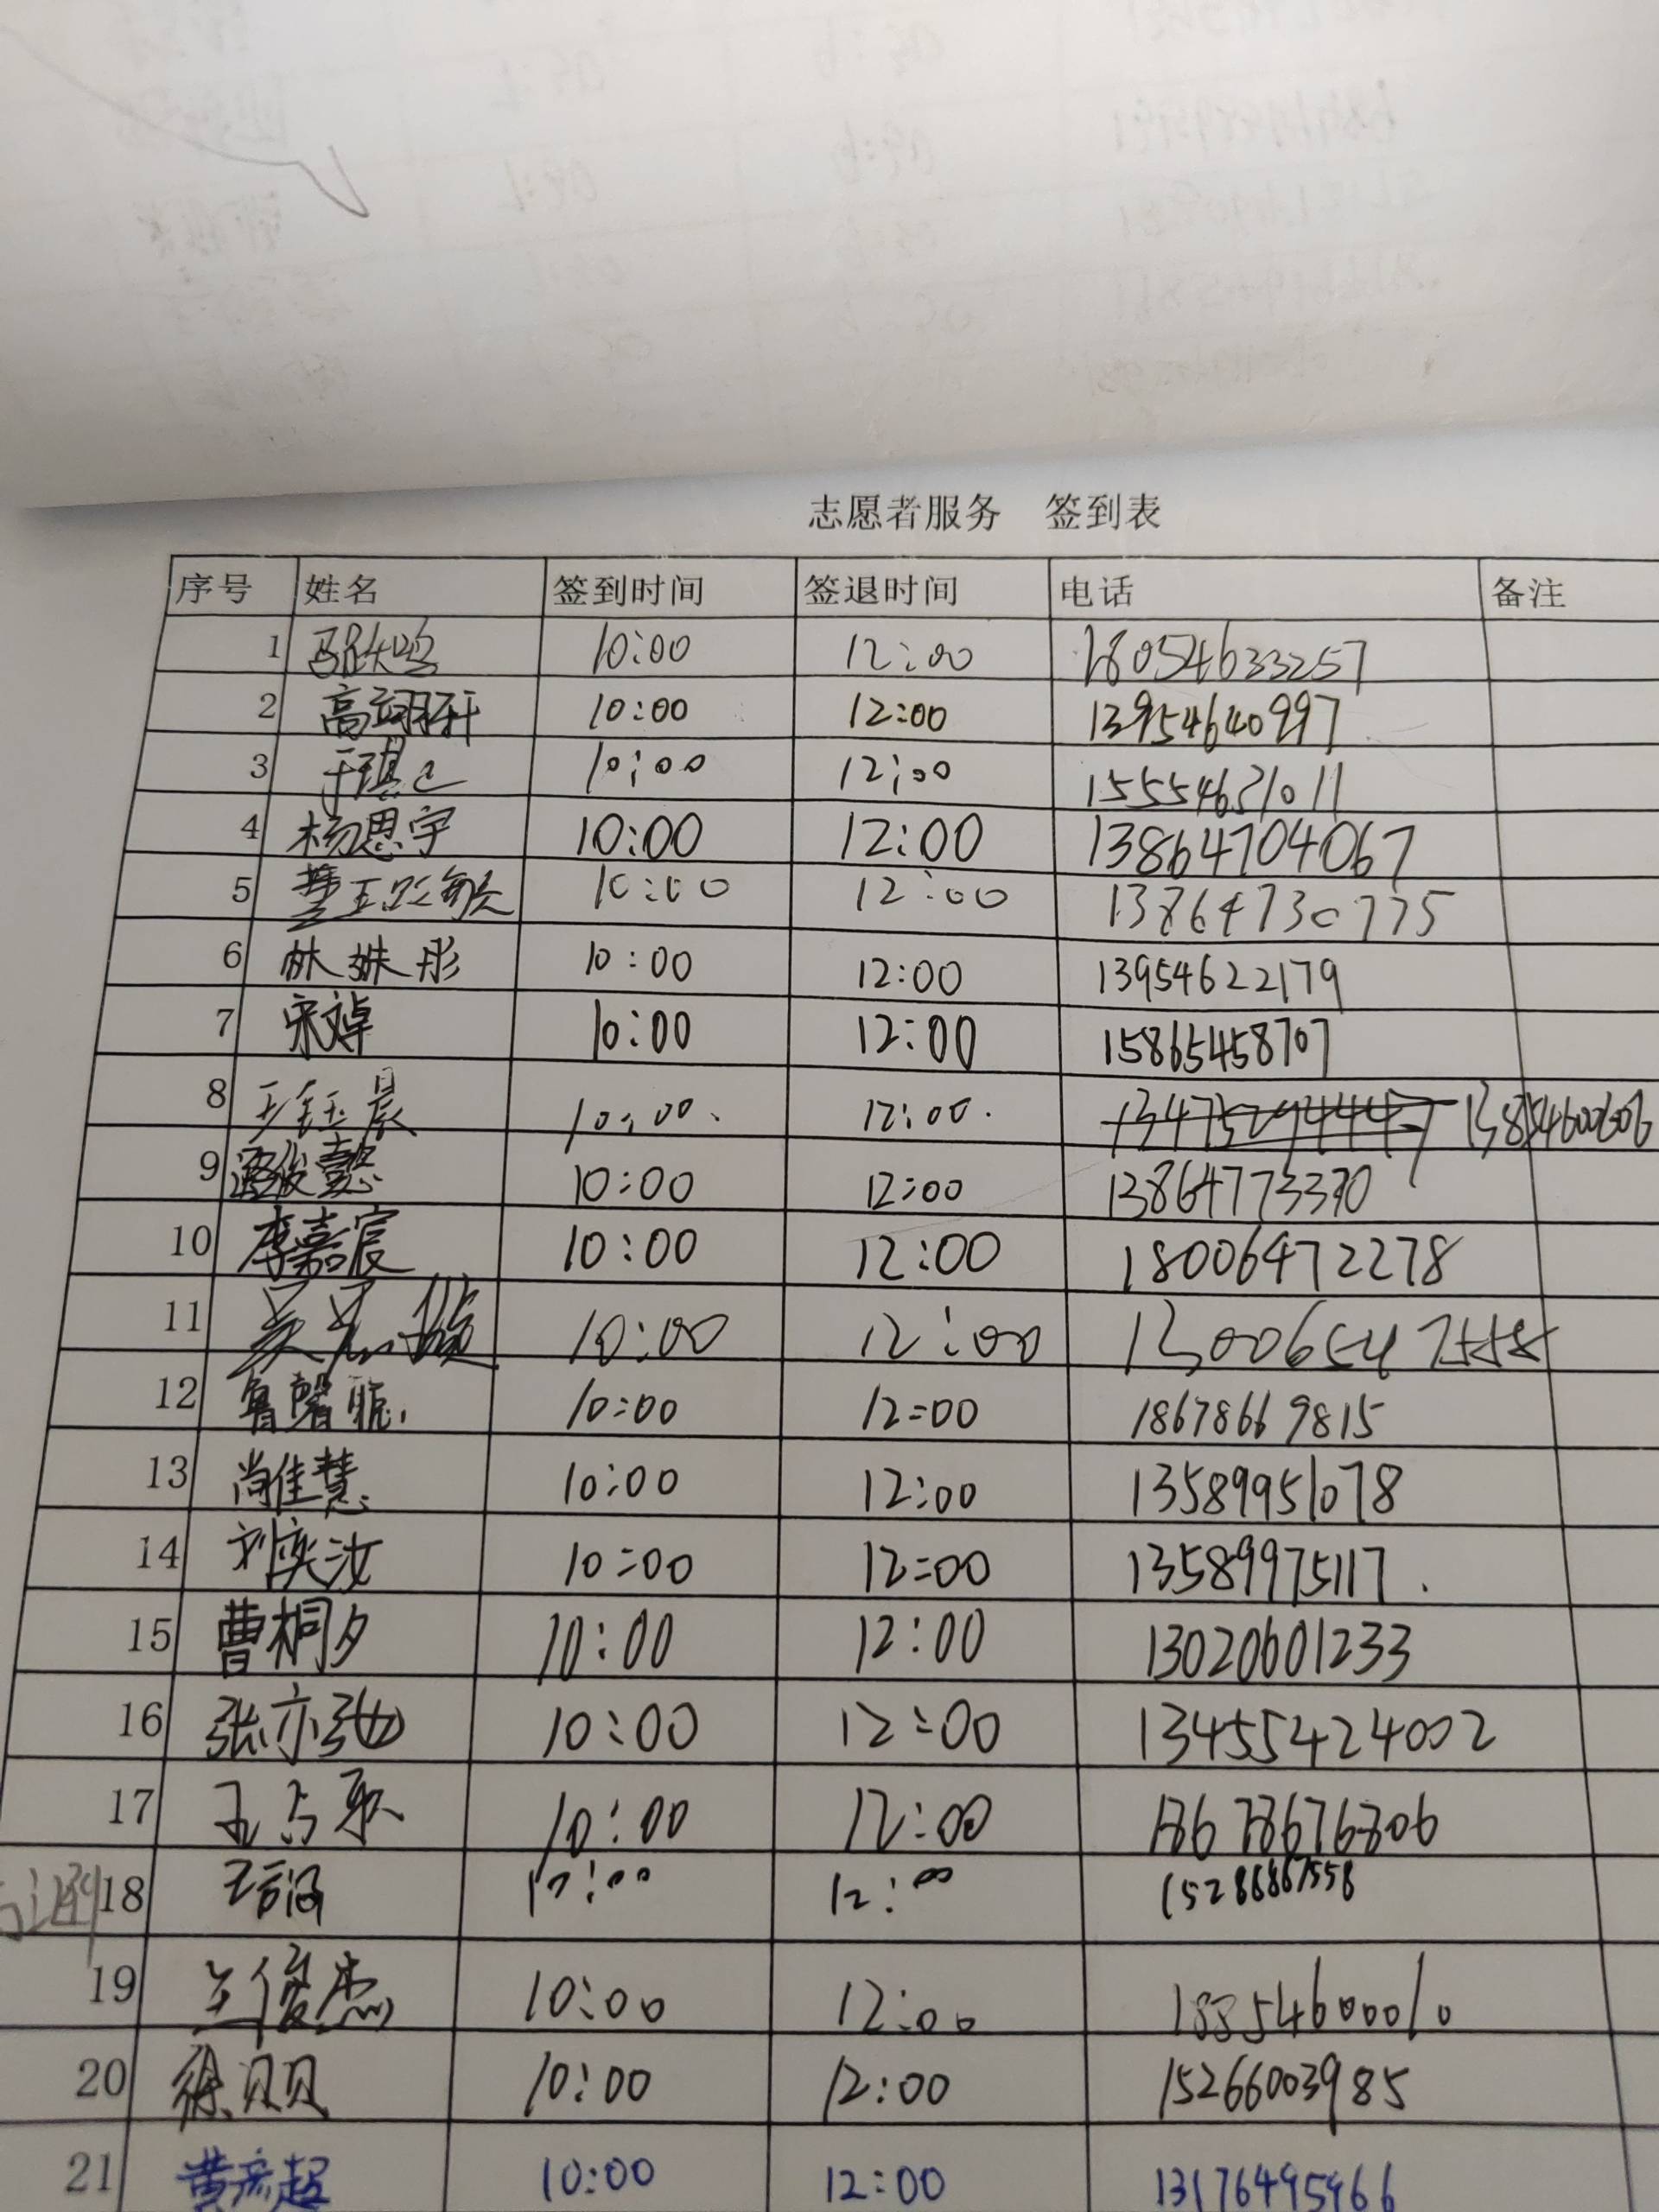 志愿者服务 签到表
序号 姓名 签到时间 签退时间 电话 备注
1 10:00 12:00 18054633257
2 高翊轩 10:00 12:00 13954640997
3 10:00 12:00 15554631011
4 杨思宇 10:00 12:00 13864704067
5 10:00 12:00 13864730775
6 林姝彤 10:00 12:00 13954622179
7 宋文卓 10:00 12:00 15865458707
8 王钰晨 10:00. 12:00. 13854600606
9 10:00 12:00 13864773370
10 李嘉宸 10:00 12:00 18006472278
11 10:00 12:00 13006547558
12 10:00 12:00 18678669815
13 尚佳慧 10:00 12:00 13589951078
14 刘奕汝 10:00 12:00 13589975117.
15 曹桐夕 10:00 12:00 13020601233
16 张亦弛 10:00 12:00 13455424002
17 10:00 12:00 18678676806
18 10:00 12:00 15286867558
19 王俊杰 10:00 12:00 18854600010
20 徐贝贝 10:00 12:00 15266003985
21 黄彦超 10:00 12:00 13176495966